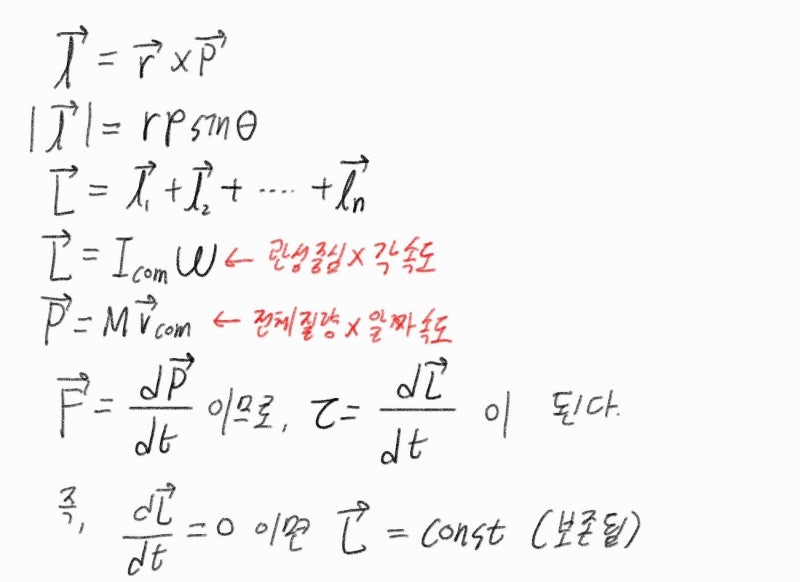 l⃗ = r⃗ × P⃗
|l⃗| = rpsinθ
L⃗ = l⃗₁ + l⃗₂ + ···· + l⃗n
L⃗ = I_com ω ← 관성중심 × 각속도
P⃗ = M v⃗_com ← 전체질량 × 알짜속도
F⃗ = dP⃗/dt 이므로, τ = dL⃗/dt 이 된다.
즉, dL⃗/dt = 0 이면 L⃗ = const (보존됨)